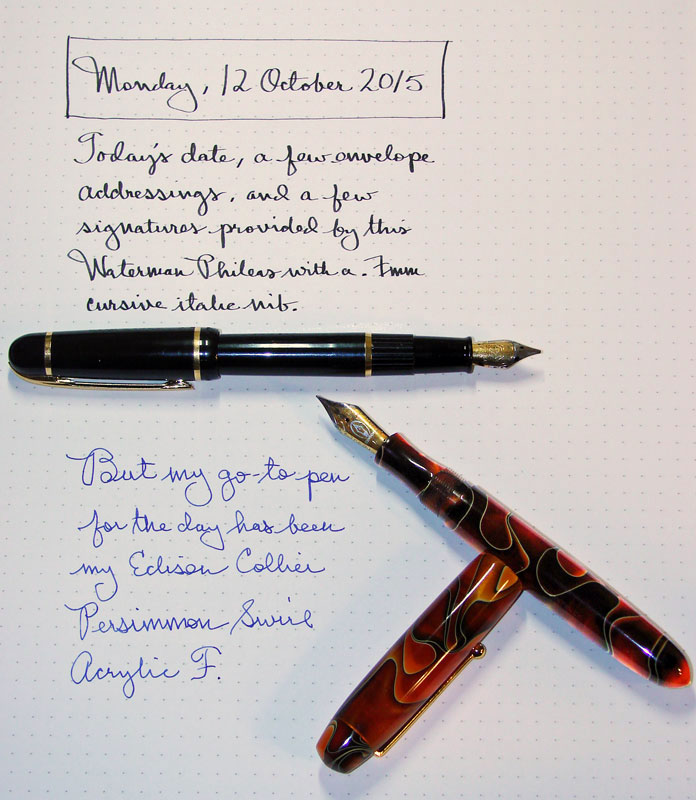 Monday, 12 October 2015
Today's date, a few envelope
addressings, and a few
signatures provided by this
Waterman Phileas with a .7mm
cursive italic nib.
But my go-to pen
for the day has been
my Edison Collier
Persimmon Swirl
Acrylic F.